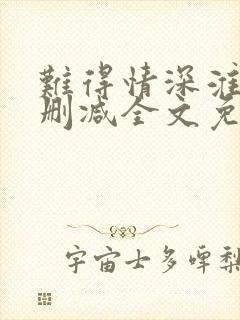 難得情深淮
删减全文免
宇宙士多啤梨